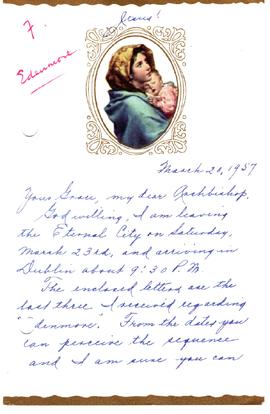 Jesus!
F.
Edenmore
March 20, 1957
Your Grace, my dear Archbishop,
God willing, I am leaving
the Eternal City on Saturday,
March 23rd, and arriving in
Dublin about 9:30 P.M.
The enclosed letters are the
last three I received regarding
"Edenmore". From the dates you
can perceive the sequence
and I am sure you can